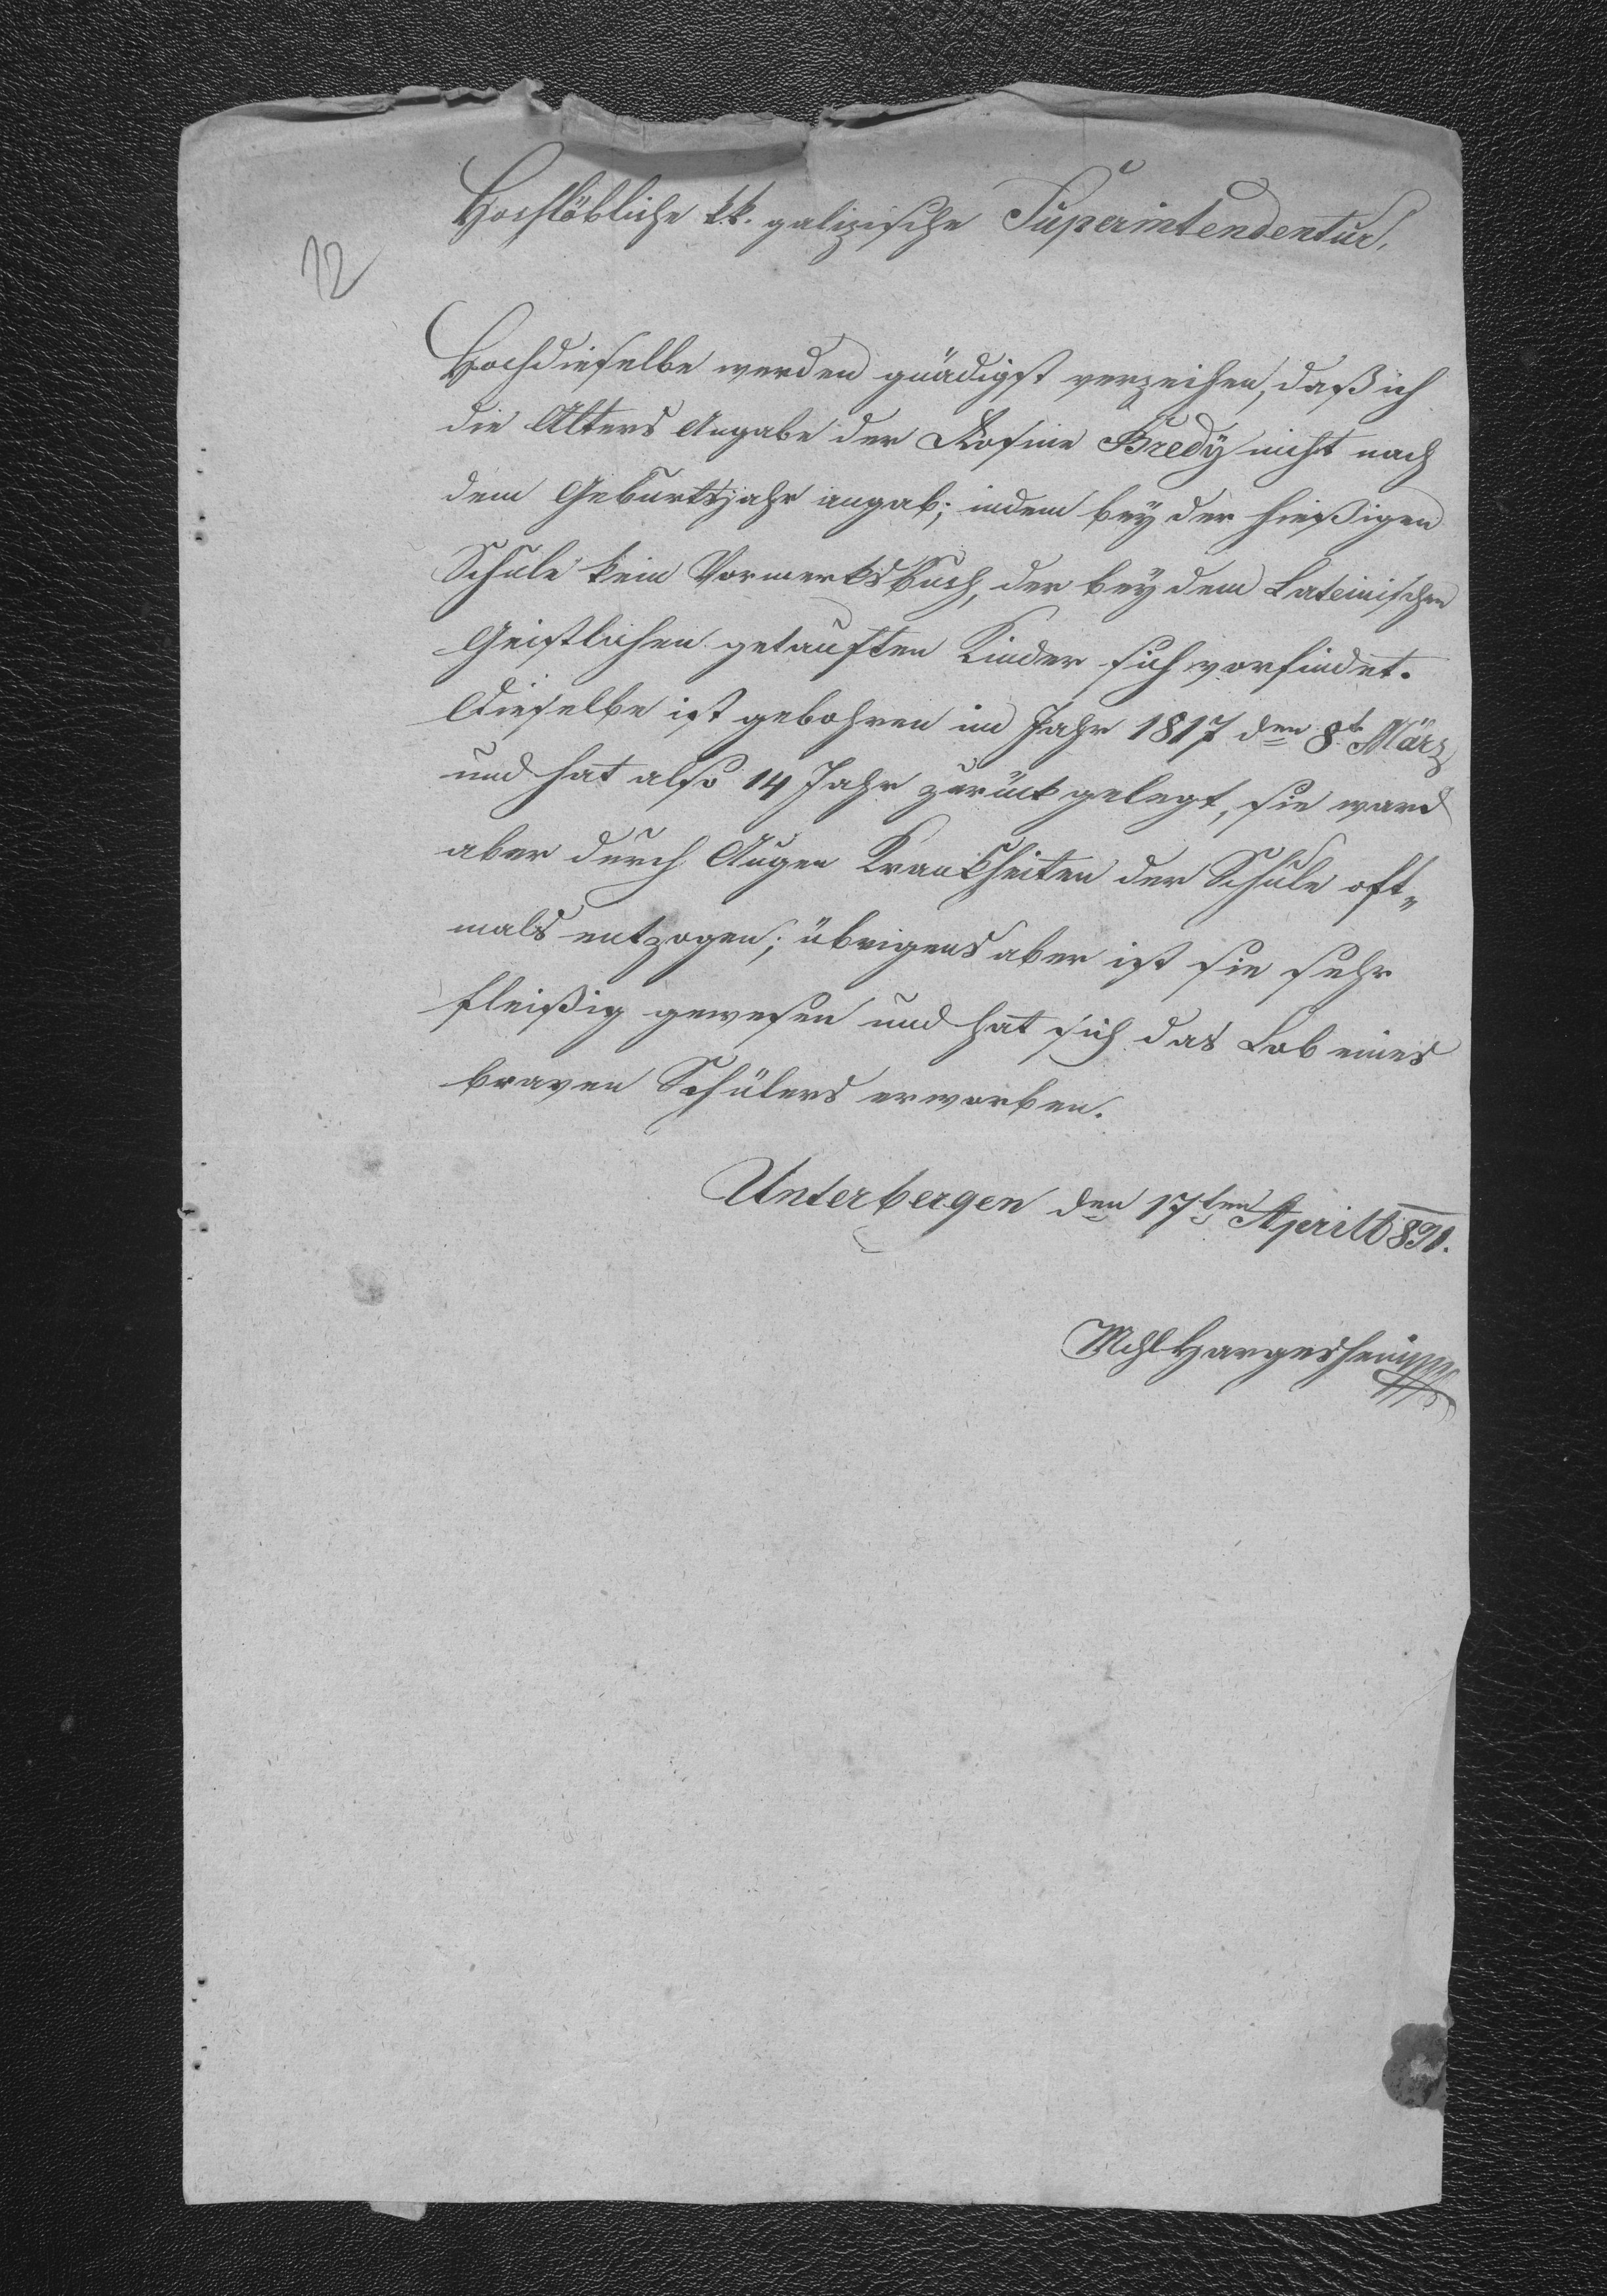 Hochlöbliche k.k. galizische Superintendentur,
12
Hochdieselbe werden gnädigst verzeihen, daß ich
die Alters Angabe der Rosine Bredÿ nicht nach
dem Geburtsjahr angab; indem beÿ der hießigen
Schule kein Vormerksbuch, der beÿ dem Lateinischen
Geistlichen getauften Kinder sich vorfindet.
Dieselbe ist gebohren im Jahr 1817 den 8t März
und hat also 14 Jahr zurückgelegt, sie ward
aber durch Augen Krankheiten der Schule oft„
mals entzogen; übrigens aber ist sie sehr
fleißig gewesen und hat sich das Lob eines
braven Schülers erworben.
Unterbergen den 17ten April 1831.
Mchl Hargesheim